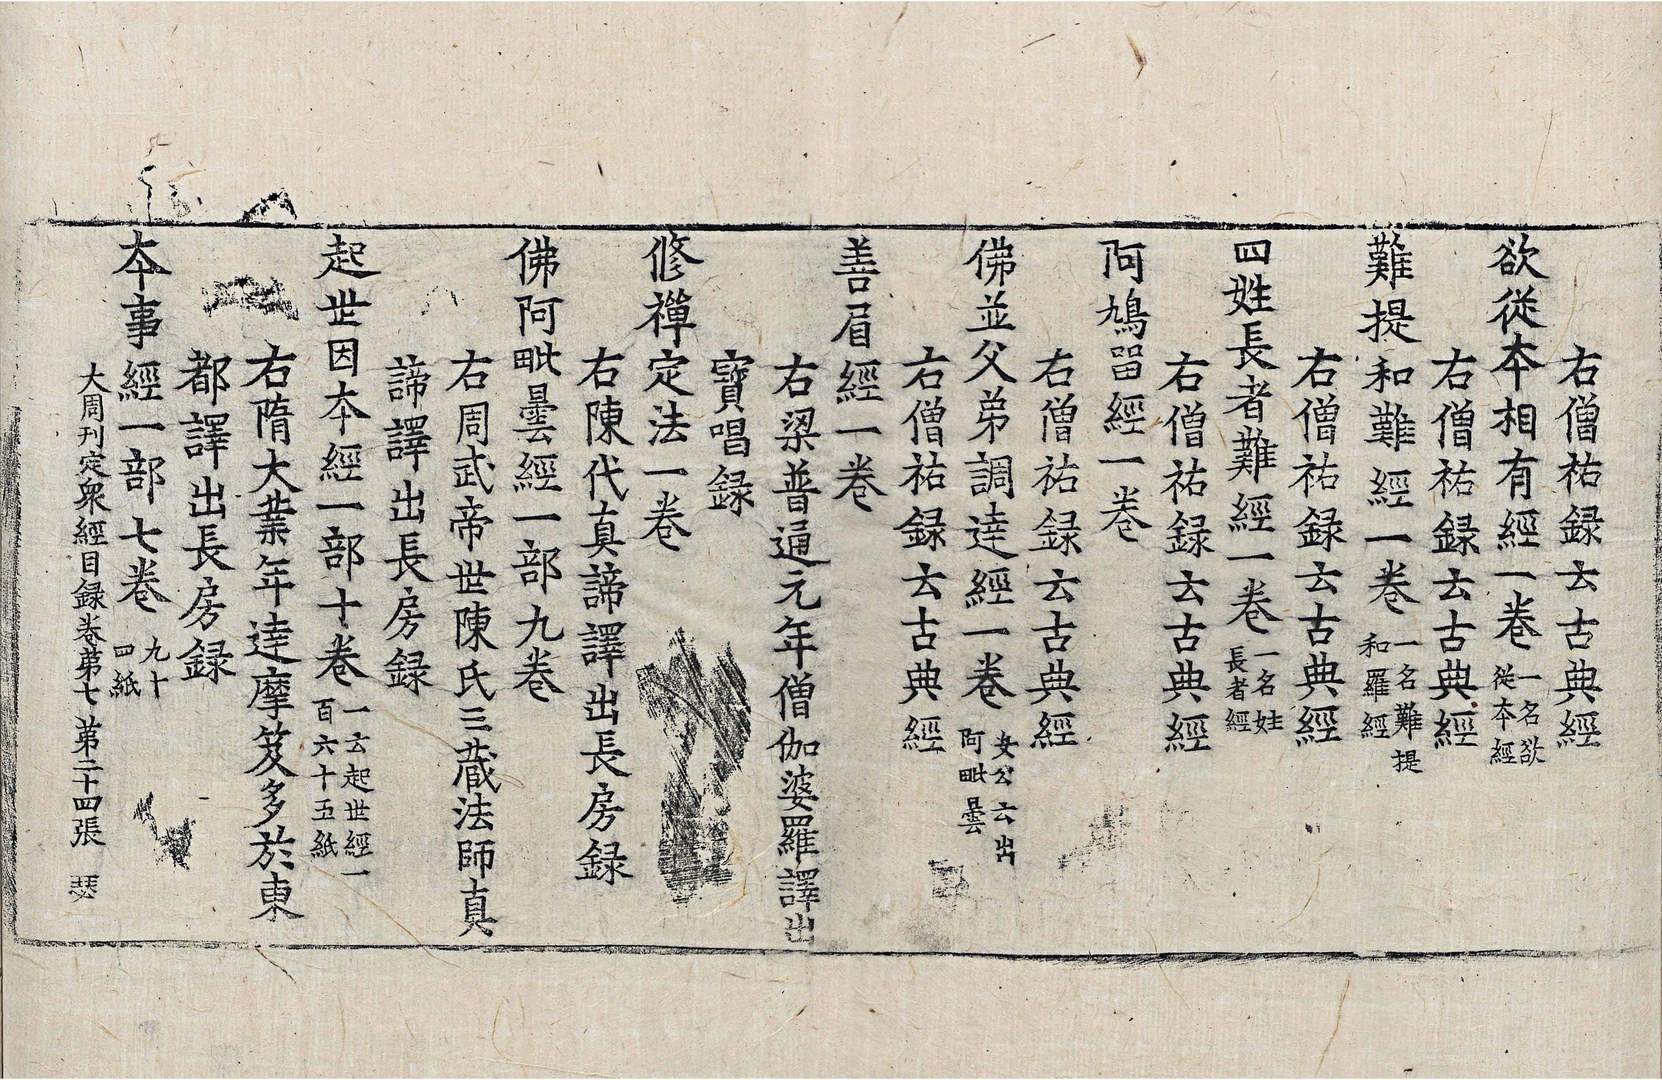 右僧祐録云古典經
欲從本相有經一卷一名欲從本經
右僧祐録云古典經
難提和難經一卷一名難提和羅經
右僧祐録云古典經
四姓長者難經一卷一名姓長者經
右僧祐録云古典經
阿鳩留經一卷
右僧祐録云古典經
佛並父弟調達經一卷安公云出阿毗曇
右僧祐録云古典經
善眉經一卷
右梁普通元年僧伽婆羅譯出
寶唱録
修禪定法一卷
右陳代真諦譯出長房録
佛阿毗曇經一部九卷
右周武帝世陳氏三藏法師真
諦譯出長房録
起世因本經一部十卷一云起世經一百六十五紙
右隋大業年達摩笈多於東
都譯出長房録
本事經一部七卷九十四紙
大周刊定衆經目録卷第七 第二十四張 瑟